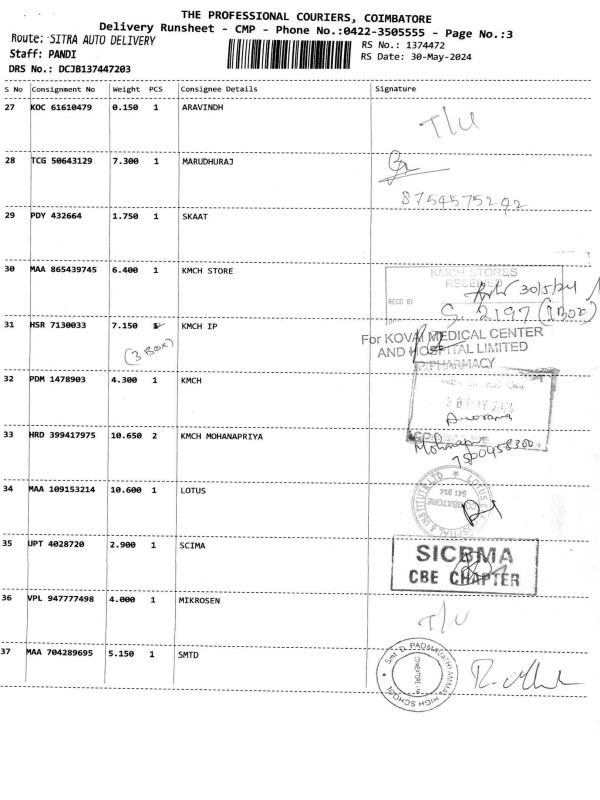 THE PROFESSIONAL COURIERS, COIMBATORE
Delivery Runsheet - CMP - Phone No.:0422-3505555 - Page No.:3
Route: SITRA AUTO DELIVERY
RS No.: 1374472
Staff: PANDI
RS Date: 30-May-2024
DRS No.: DCJB137447203
S No Consignment No Weight PCS Consignee Details Signature
27 KOC 61610479 0.150 1 ARAVINDH
T/U
28 TCG 50643129 7.300 1 MARUDHURAJ
8754575242
29 PDY 432664 1.750 1 SKAAT
30 MAA 865439745 6.400 1 KMCH STORE
KMCH STORES
RECEIVED
30/5/24
RECD BY
S. 2197 (1 Box)
31 HSR 7130033 7.150 KMCH IP
(3 Box)
For KOVAI MEDICAL CENTER
AND HOSPITAL LIMITED
PHARMACY
32 PDM 1478903 4.300 1 KMCH
33 HRD 399417975 10.650 2 KMCH MOHANAPRIYA
7500458300
34 MAA 109153214 10.600 1 LOTUS
35 UPT 4028720 2.900 1 SCIMA
SICBMA
CBE CHAPTER
36 VPL 947777498 4.000 1 MIKROSEN
T/U
37 MAA 704289695 5.150 1 SMTD
Smt. D. PADMAVATHI AMMAL HIGH SCHOOL